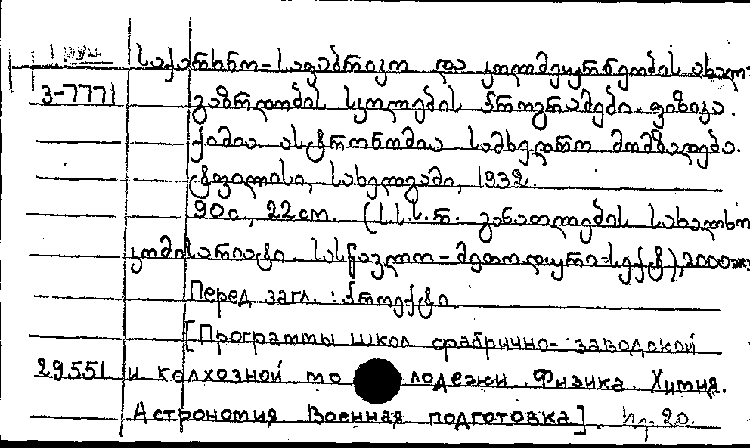 საქარხნო-საფაბრიკო და კოლმეურნეობის ახალ-
3-7771 გაზრდობის სკოლების პროგრამები. ფიზიკა.
ქიმია ასტრონომია სამხედრო მომზადება.
ტფილისი, სახელგამი, 1932.
90с, 22 см. (ს.ს.ს.რ. განათლების სახალხო
კომისარიატი. სასწავლო-მეთოდიური სექტ), 2000
Перед загл.: პროექტი
[Программы школ фабрично-заводской
29551 и колхозной мо лодежи. Физика. Химия.
Астрономия Военная подготовка]. 20.